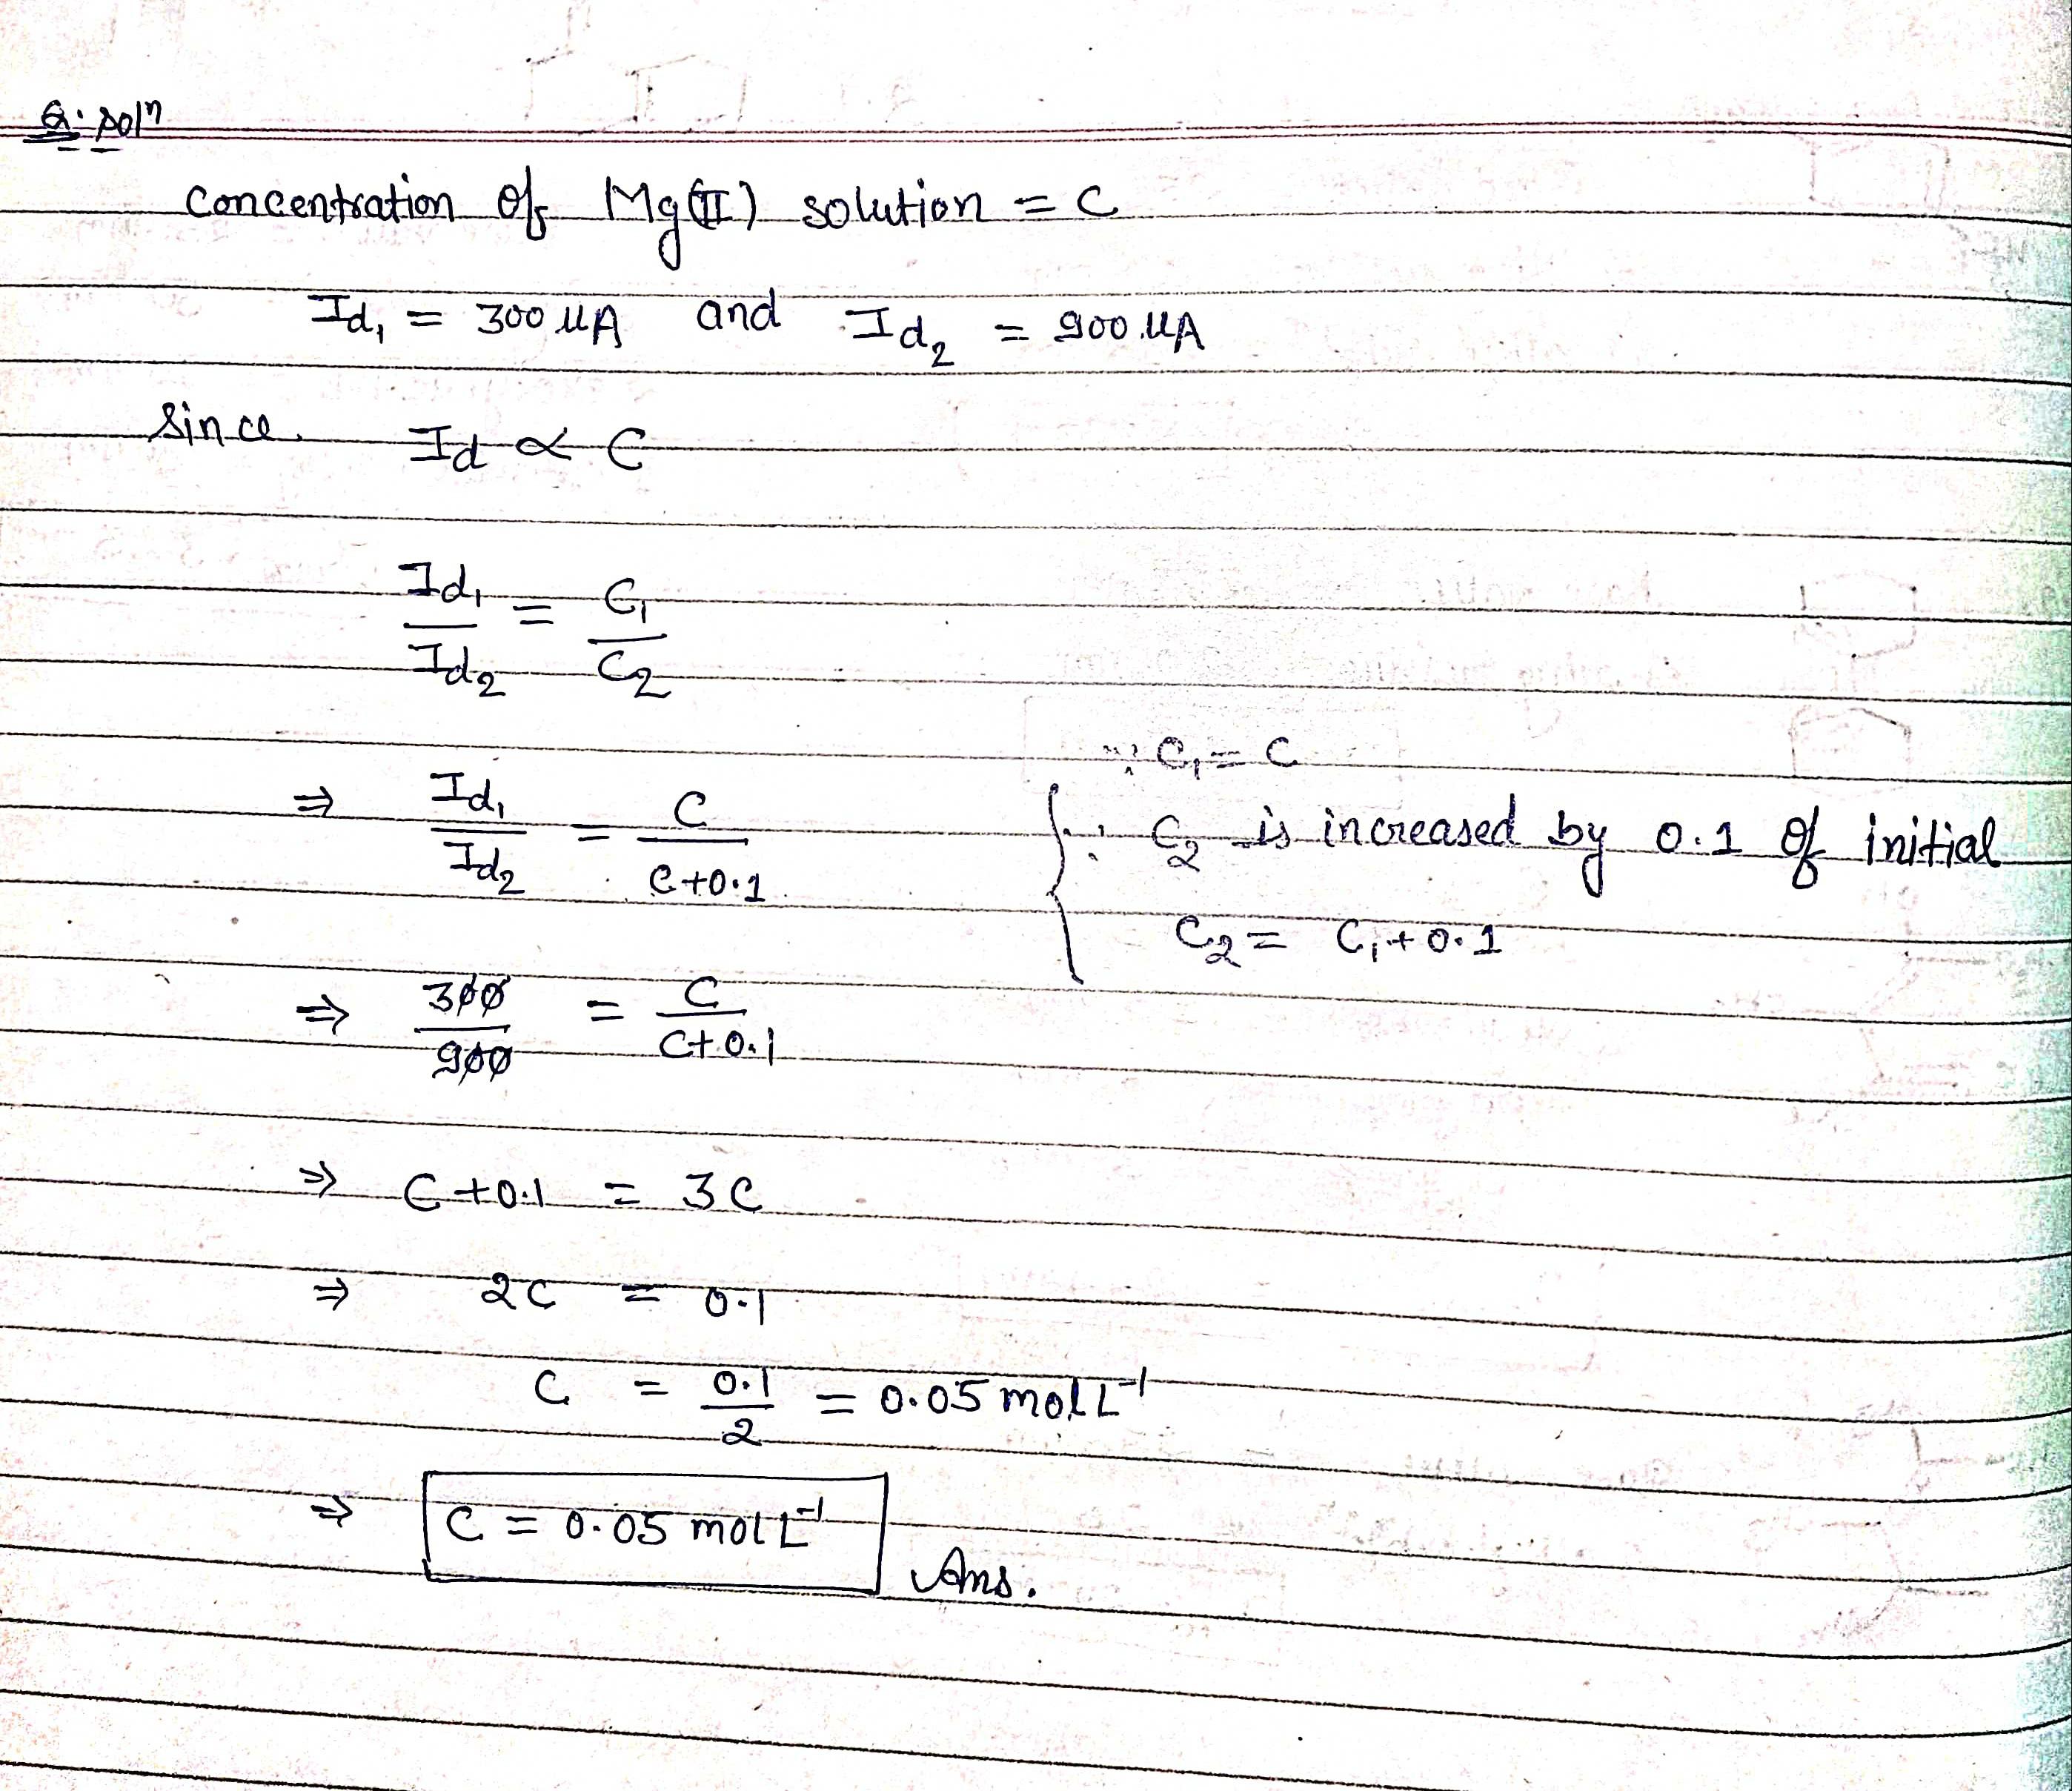 Q. soln
Concentration of Mg(II) solution = C
Id₁ = 300 μA and Id₂ = 900 μA
Since Id ∝ C
Id₁/Id₂ = C₁/C₂
∵ C₁ = C
⇒ Id₁/Id₂ = C/C+0.1
{∵ C₂ is increased by 0.1 of initial
C₂ = C₁+0.1
⇒ 300/900 = C/C+0.1
⇒ C+0.1 = 3C
⇒ 2C = 0.1
C = 0.1/2 = 0.05 mol L⁻¹
⇒ C = 0.05 mol L⁻¹ Ans.